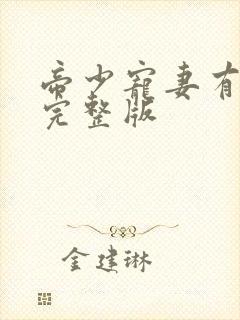 帝少寵妻有
完整版
金建琳